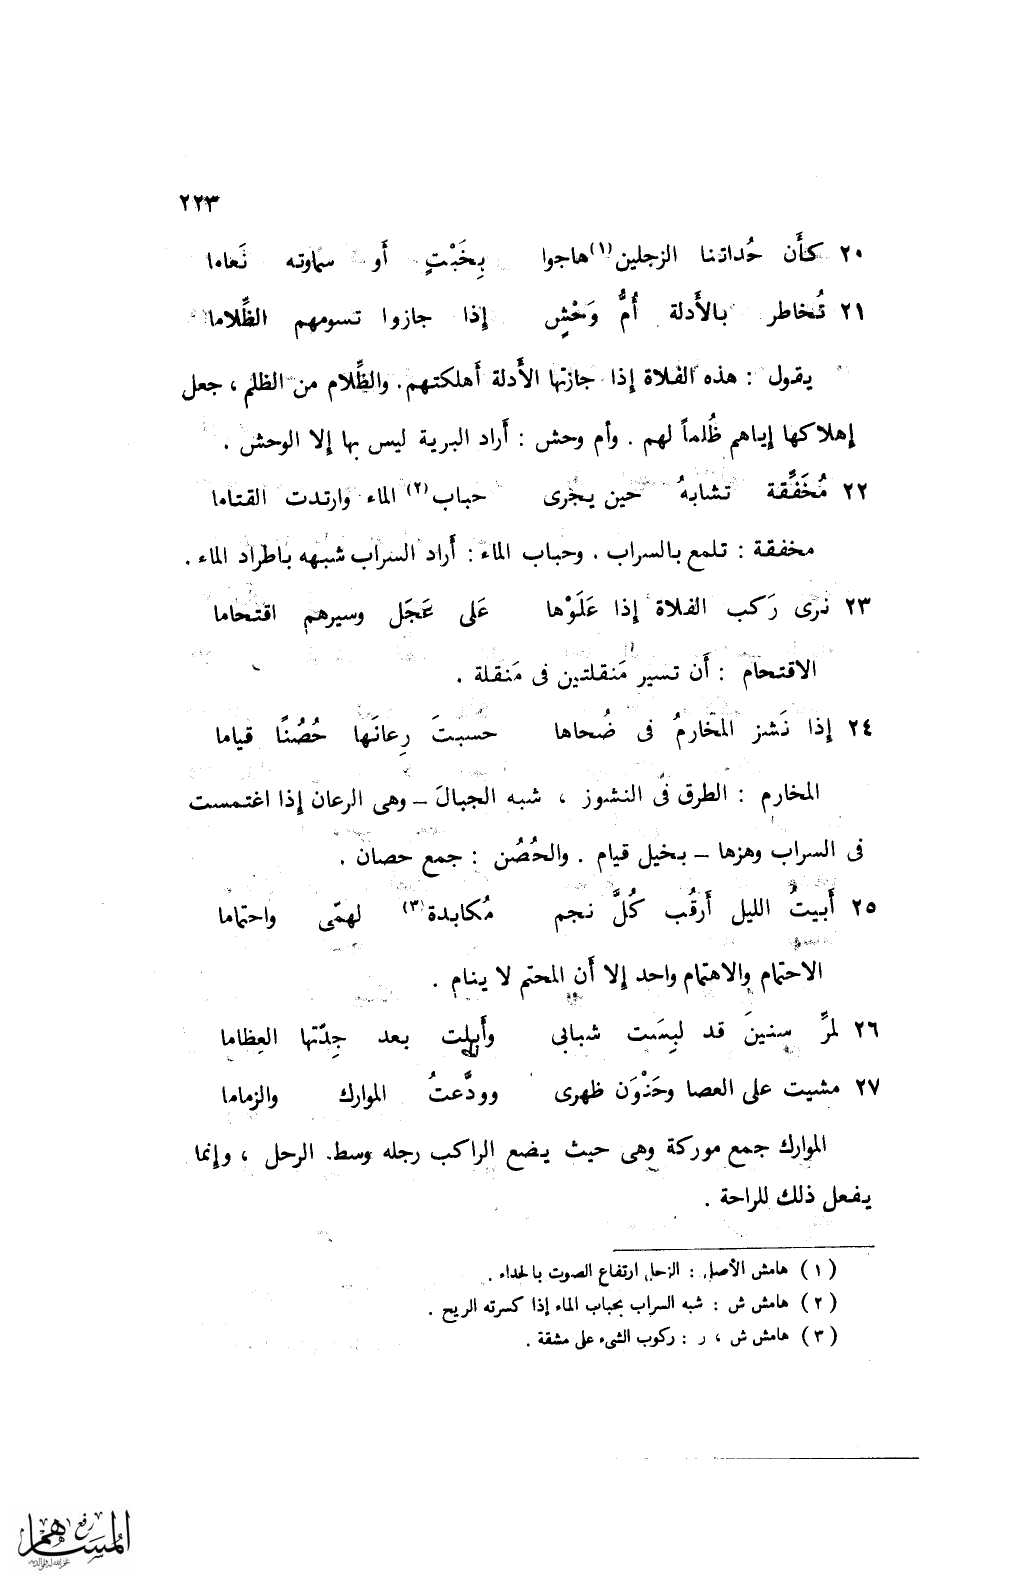 ٢٢٣
٢٠ كأَن حُداتنا الزجلين(١) هاجوا بِخَبْتٍ أَو سماوته نَعاما
٢١ تُخاطر بالأَدلة أُمُّ وَحْشٍ إِذا جازوا تسومهم الظِّلاما
يقول : هذه الفلاة إِذا جازتها الأَدلة أَهلكتهم. والظِّلام من الظلم ، جعل
إهلاكها إياهم ظُلماً لهم . وأم وحش : أَراد البرية ليس بها إلا الوحش .
٢٢ مُخَفِّقة تشابهُ حين يجْرى حباب(٢) الماء وارتدت القتاما
مخفقة : تلمع بالسراب . وحباب الماء : أَراد السراب شبهه باطراد الماء .
٢٣ نرى رَكب الفلاة إِذا عَلَوْها عَلى عَجَل وسيرهم اقتحاما
الاقتحام : أَن تسير مَنقلتين فى مَنقلة .
٢٤ إِذا نَشز المخارمُ فى ضُحاها حسبتَ رِعانَها حُصُنًا قياما
المخارم : الطرق فى النشوز ، شبه الجبال ــ وهى الرعان إِذا اغتمست
فى السراب وهزها ــ بخيل قيام . والحُصُن : جمع حصان .
٢٥ أَبيتُ الليل أَرقُب كُلَّ نجم مُكابدة(٣) لهمّى واحتماما
الاحتمام والاهتمام واحد إلا أَن المحتم لا ينام .
٢٦ لمرِّ سنينَ قد لبِسَت شبابى وأَبلت بعد جِدّتها العِظاما
٢٧ مشيت على العصا وحَنْوَن ظهرى وودَّعتُ الموارك والزماما
الموارك جمع موركة وهى حيث يضع الراكب رجله وسط. الرحل ، وإنما
يفعل ذلك للراحة .
(١) هامش الأصل : الزحل ارتفاع الصوت بالحداء .
(٢) هامش ش : شبه السراب بحباب الماء إذا كسرته الريح .
(٣) هامش ش ، ر : ركوب الشىء على مشقة .